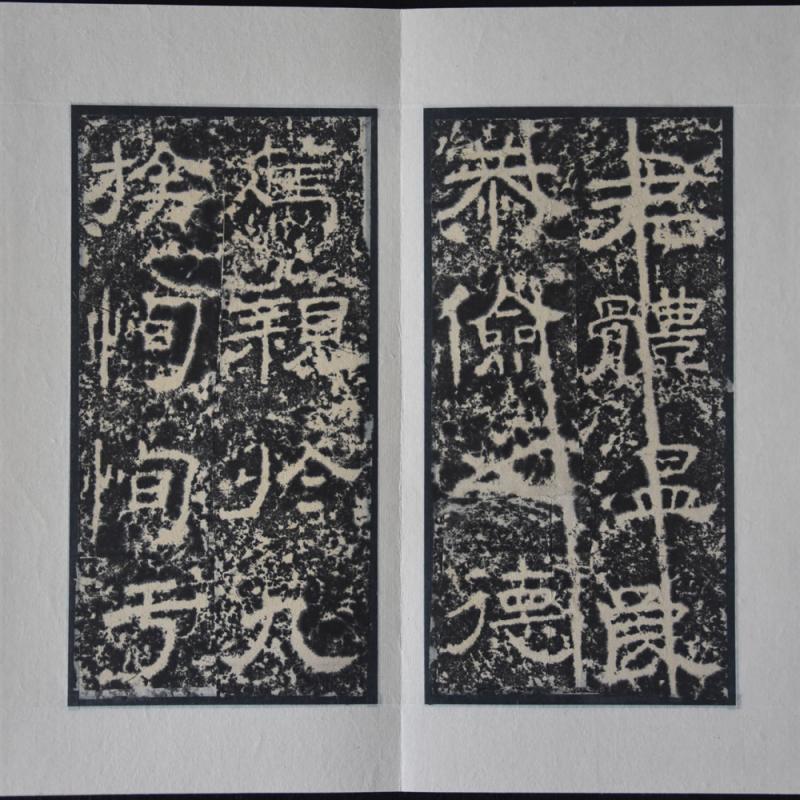 君體溫良
恭儉之德
篤親於九
族恂恂于